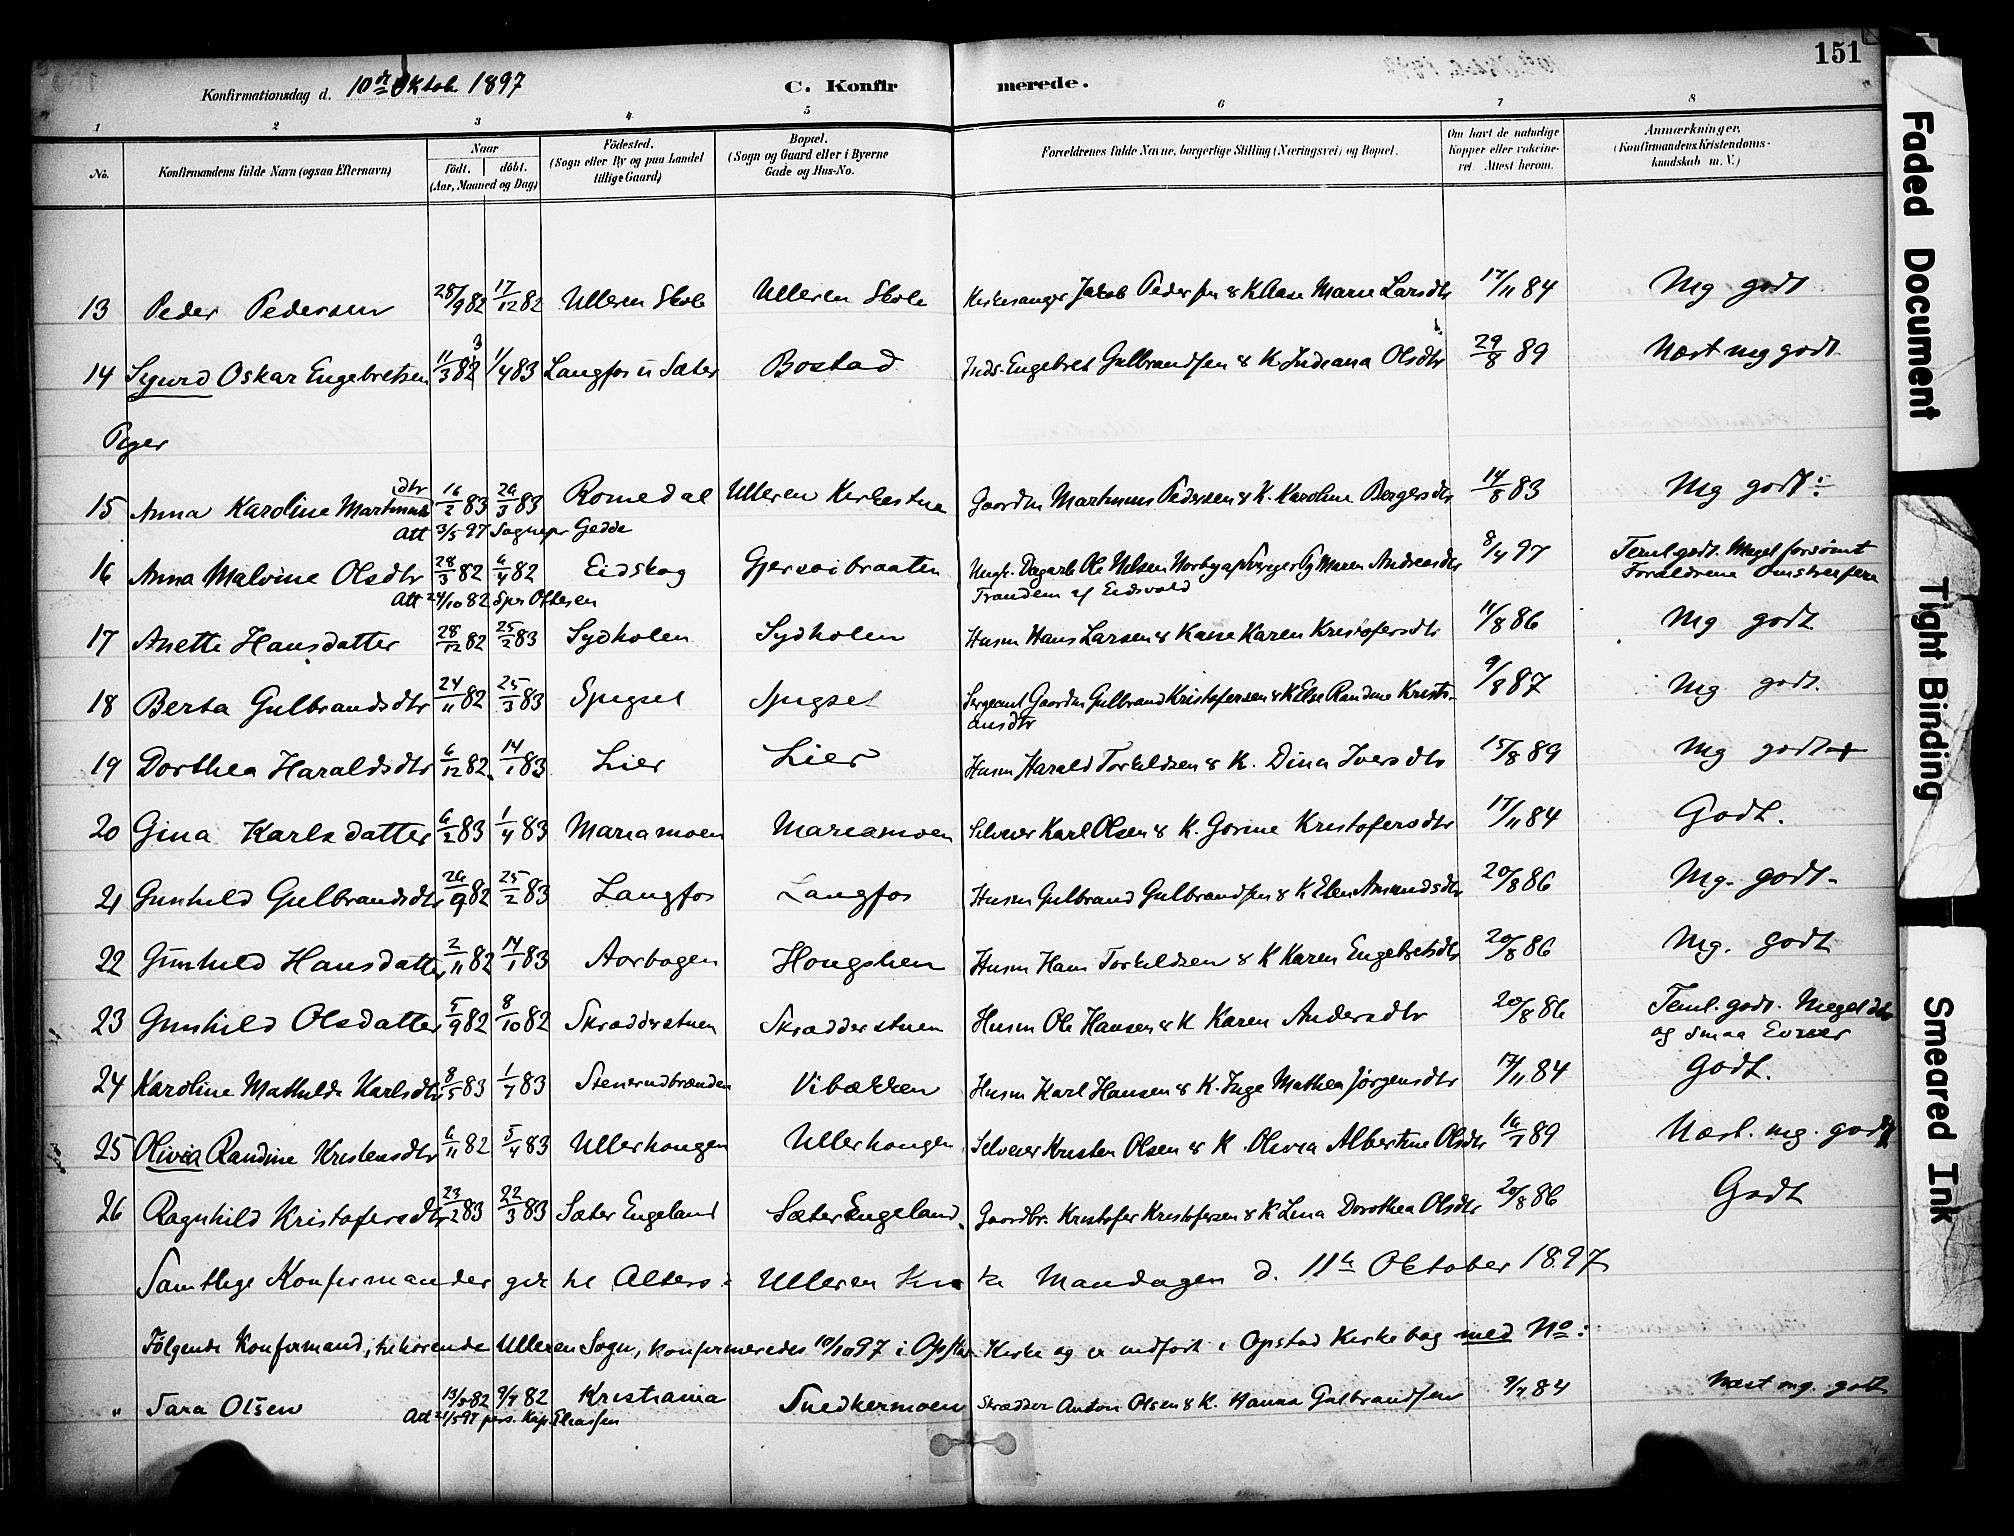 151
Konfirmationsdag d. 10de Oktob. 1897 C. Konfirmerede.
1 2 3 4 5 6 7 8
No. Konfirmandens fulde Navn (ogsaa Efternavn) Naar født. døbt. (Aar, Maaned og Dag) Fødested. (Sogn eller By og paa Landet tillige Gaard) Bopæl. (Sogn og Gaard eller i Byerne Gade og Hus-No. Forældrenes fulde Navne, borgerlige Stilling (Næringsvei) og Bopæl. Om havt de naturlige Kopper eller vakcineret. Attest herom. Anmærkninger. (Konfirmandens Kristendomskundskab m. V.)
13 Peder Pedersen 28/9 82 17/12 82 Ulleren Skole Ulleren Skole Kirkesanger Jakob Pedersen & K Aase Marie Larsdtr 17/11 84 Mg godt
14 Sigurd Oskar Engebretsen 11/3 82 3 1/4 83 Langfos u Sæter Bostad Inds. Engebret Gulbrandsen & K. Indiana Olsdtr 29/8 89 Næst mg godt.
Piger
15 Anna Karoline Martinusdtr 16/2 83 26/3 83 Romedal Ulleren Kirkestue Gaardm Martinus Pedersen & K. Karoline Bergersdtr 14/8 83 Mg godt:
Att 3/5 97 Sognepr Gedde
16 Anna Malvine Olsdtr 28/3 82 6/4 82 Eidskog Gjersoibraaten Ungk. Dagarb Ole Nilsen Norby af Sverige Pg Maren Andreasdtr 8/4 97 Teml. godt. Meget forsømt
Trandem af Eidsvold Forældrene Omstreifere
Att 24/10 82 Spr Ottesen
17 Anette Hansdatter 28/12 82 25/2 83 Sydholen Sydholen Husm Hans Larsen & Kone Karen Kristofersdtr 11/8 86 Mg godt.
18 Berta Gulbrandsdtr 24/11 82 25/3 83 Spigset Spigset Sergeant Gaardm Gulbrand Kristofersen & K Else Randine Kristi-
ansdtr 9/8 87 Mg godt.
19 Dorthea Haraldsdtr 6/12 82. 14/1 83 Lier Lier Husm Harald Torkildsen & K. Dina Iversdtr 15/8 89 Mg godt
20 Gina Karlsdatter 6/2 83 1/4 83 Mariamoen Mariamoen Selveier Karl Olsen & K. Gorine Kristofersdtr 17/11 84 Godt.
21 Gunhild Gulbrandsdtr 26/9 82 25/2 83 Langfos Langfos Husm Gulbrand Gulbrandsen & K Elen Amundsdtr 20/8 86 Mg. godt.
22 Gunhild Hansdatter 2/11 82 14/1 83 Aarbogen Hongshen Husm Hans Torkildsen & K Karen Engebretsdtr 20/8 86 Mg. godt
23 Gunhild Olsdatter 5/9 82 8/10 82 Skrædderstuen Skrædderstuen Husm Ole Hansen & K Karen Andersdtr 20/8 86 Teml. godt. Meget
og smaa Evner
24 Karoline Mathilde Karlsdtr 8/5 83 1/7 83 Stenerudbrænden Vibækken Husm Karl Hansen & K. Inge Mathea Jørgensdtr 17/11 84 Godt.
25 Olivia Randine Kristensdtr 6/11 82 5/4 83 Ullerhougen Ullerhougen Selveier Kristen Olsen & K. Olivia Albertine Olsdtr 16/7 89 Næst. mg. godt
26 Ragnhild Kristofersdtr 23/2 83 22/3 83 Sæter Engeland Sæter Engeland. Gaardbr. Kristofer Kristofersen & K Lina Dorothea Olsdtr 20/8 86 Godt
Samtlige Konfirmander gik til Alters i Ulleren Kirke Mandagen d. 11te Oktober 1897
Følgende Konfirmand, tilhørende Ulleren Sogn, konfirmeredes 10/10 97 i Opstad Kirke og er indført i Opstad Kirkebog med No:
" Sara Olsen 13/2 82 9/7 82 Kristiania Snedkermoen Skrædder Anton Olsen & K. Hanna Gulbrandsen 9/7 84 Næst mg. godt
Att 21/5 97 pers. Kap. Eliassen
Faded Document
Tight Binding
Smeared Ink